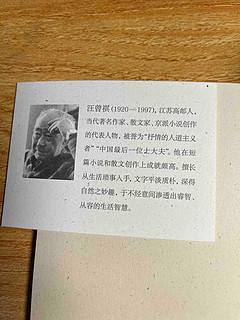 汪曾祺(1920—1997)，江苏高邮人，
当代著名作家、散文家、京派小说创作
的代表人物，被誉为“抒情的人道主义
者”“中国最后一位士大夫”。他在短
篇小说和散文创作上成就颇高。擅长
从生活琐事入手，文字平淡质朴，深得
自然之妙趣，于不经意间渗透出睿智、
从容的生活智慧。